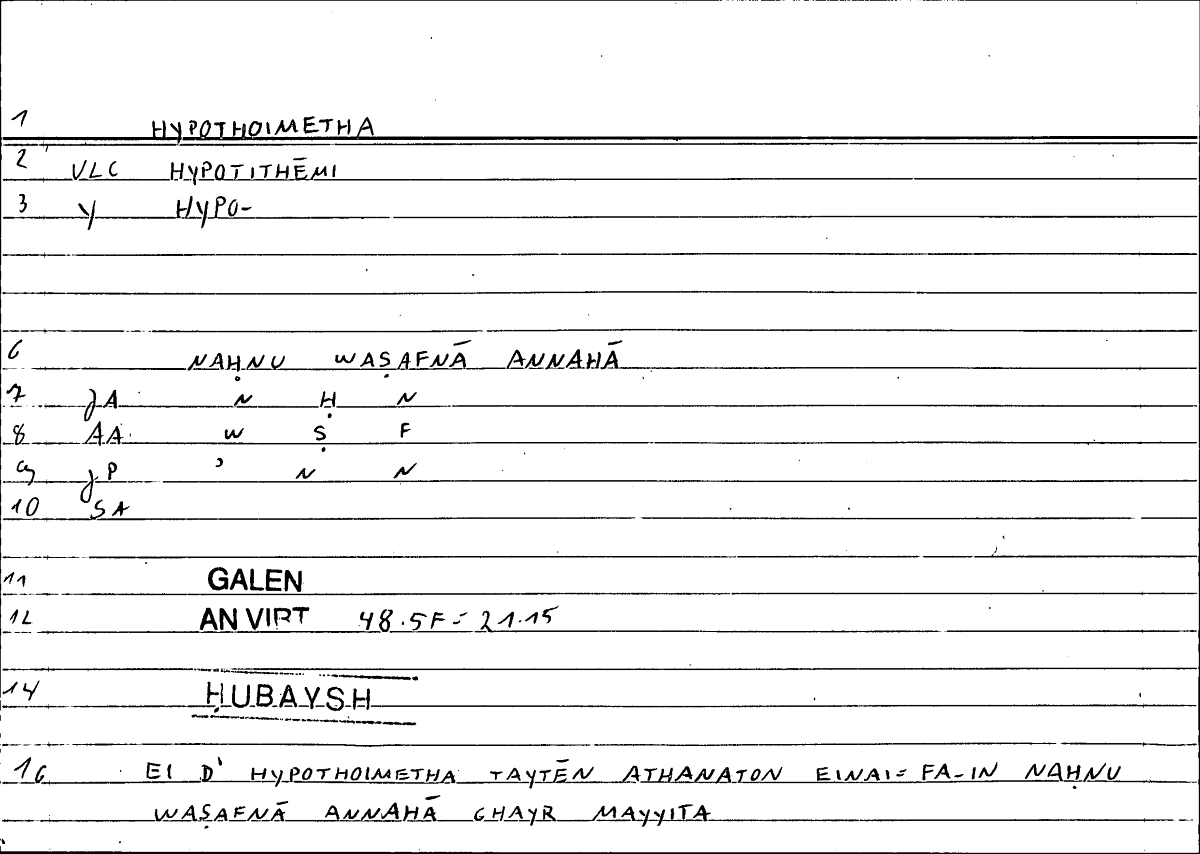 1 HYPOTHOIMETHA
2 VLC HYPOTITHĒMI
3 Y HYPO-
6 NAḤNU WAṢAFNĀ ANNAHĀ
7 JA N Ḥ N
8 AA W Ṣ F
9 JP ʾ N N
10 SA
11 GALEN
12 AN VIRT 48.5F = 21.15
14 ḤUBAYSH
16 EI D' HYPOTHOIMETHA TAYTĒN ATHANATON EINAI = FA-IN NAḤNU
WAṢAFNĀ ANNAHĀ GHAYR MAYYITA